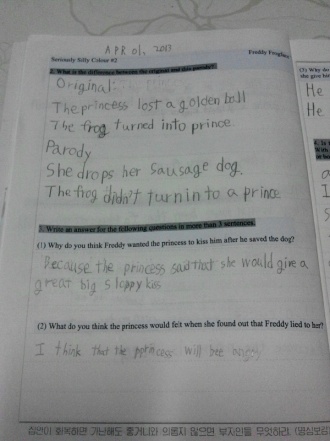 APR 01, 2013
Seriously Silly Colour #2
Freddy
2. What is the difference between the original and this parody?
Original:
The princess lost a golden ball
The frog turned into prince.
Parody
She drops her sausage dog.
The frog didn't turn in to a prince.
3. Write an answer for the following questions in more than 3 sentences.
(1) Why do you think Freddy wanted the princess to kiss him after he saved the dog?
Because the princess said that she would give a
great big sloppy kiss
(2) What do you think the princess would felt when she found out that Freddy lied to her?
I think that the princess will bee angry
(3) Why do
she give her
He
He
4.
I
집안이 화목하면 가난해도 좋거니와 의롭지 않으면 부자인들 무엇하랴. (명심보감)